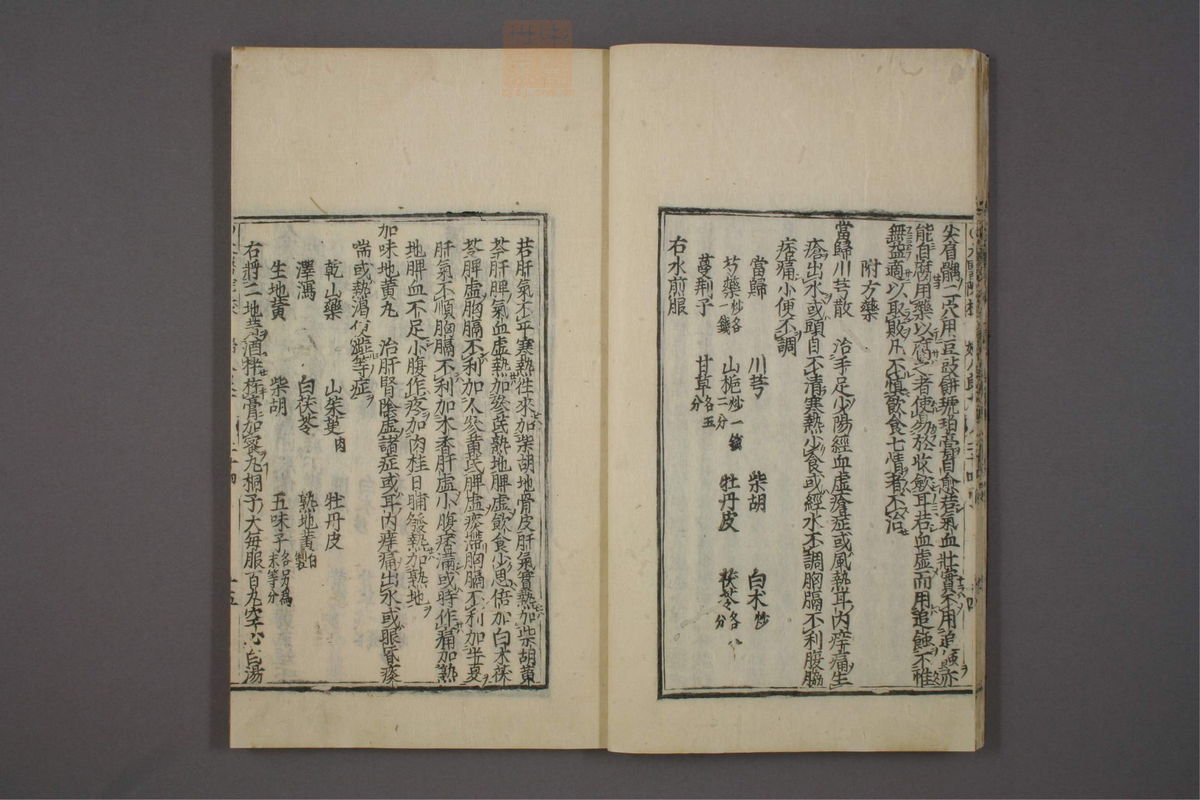 尖有髃二穴用豆豉餅琥珀膏自愈若氣血壯實不用追蝕亦
能自腐用藥以腐之者使易於收斂耳若血虛而用追蝕不惟
無益適以取敗凡不愼飲食七情者不治
附方藥
當歸川芎散 治手足少陽經血虛瘡症或風熱耳內痒痛生
瘡出水或頭目不清寒熱少食或經水不調胸膈不利腹脇
痞痛小便不調
當歸 川芎 柴胡 白术炒
芍藥炒各一錢 山梔炒一錢二分 牡丹皮 茯苓各八分
蔓荆子 甘草各五分
右水煎服
若肝氣不平寒熱徃來加柴胡地骨皮肝氣實熱加柴胡黄
芩肝脾氣血虛熱加參芪熟地脾虛飲食少思倍加白术茯
苓脾虛胸膈不利加人參黄芪脾虛痰滯胸膈不利加半夏
肝氣不順胸膈不利加木香肝虛小腹痞滿或時作痛加熟
地脾血不足小腹作疼加肉桂日晡發熱加熟地
加味地黄丸 治肝腎陰虛諸症或耳內痒痛出水或眼昏痰
喘或熱渴便澀等症
乾山藥 山茱萸肉 牡丹皮
澤瀉 白茯苓 熟地黄自製
生地黄 柴胡 五味子各另爲末等分
右將二地黄酒拌杵膏加蜜丸桐子大每服百丸空心白湯